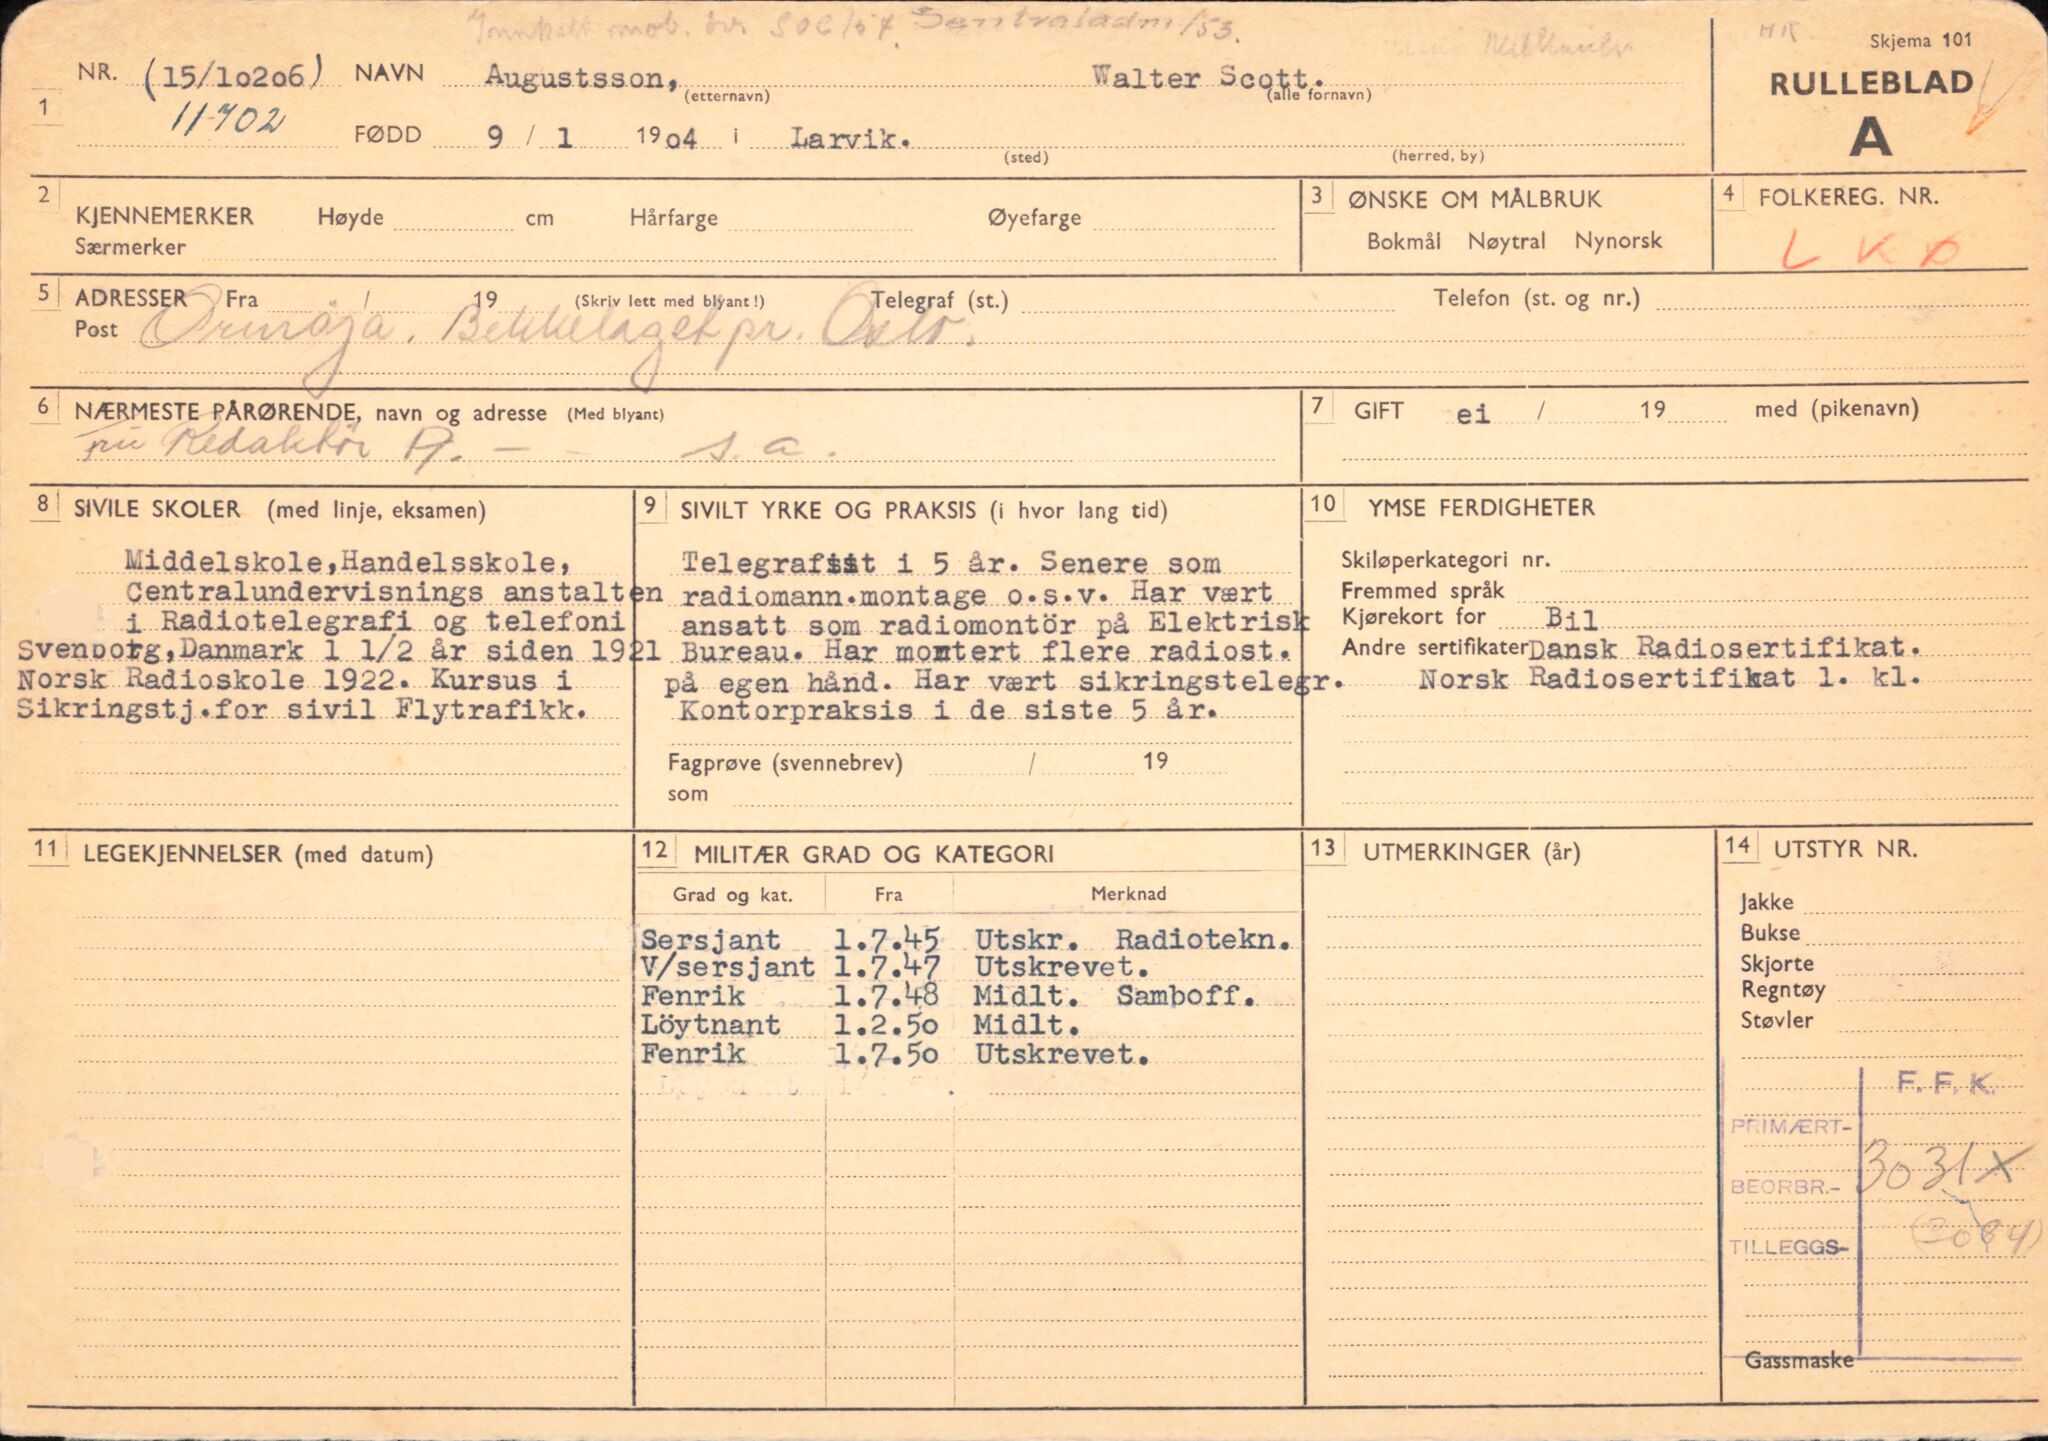 Innkalt mob. øv SOC/54. Sentraladm/53.
HK
Skjema 101
NR. (15/10206) NAVN Augustsson, (etternavn) Walter Scott. (alle fornavn)
RULLEBLAD
A
1 11702
FØDD 9 / 1 1904 i Larvik. (sted) (herred, by)
2 KJENNEMERKER Høyde cm Hårfarge Øyefarge
Særmerker
3 ØNSKE OM MÅLBRUK
Bokmål Nøytral Nynorsk
4 FOLKEREG. NR.
L K
5 ADRESSER Fra / 19 (Skriv lett med blyant!) Telegraf (st.) Telefon (st. og nr.)
Post Ormøja. Bekkelaget pr. Oslo.
6 NÆRMESTE PÅRØRENDE, navn og adresse (Med blyant)
Redaktör A. - - s. a.
7 GIFT ei / 19 med (pikenavn)
8 SIVILE SKOLER (med linje, eksamen)
Middelskole, Handelsskole,
Centralundervisnings anstalten
i Radiotelegrafi og telefoni
Svenborg, Danmark 1 1/2 år siden 1921
Norsk Radioskole 1922. Kursus i
Sikringstj.for sivil Flytrafikk.
9 SIVILT YRKE OG PRAKSIS (i hvor lang tid)
Telegrafist i 5 år. Senere som
radiomann.montage o.s.v. Har vært
ansatt som radiomontör på Elektrisk
Bureau. Har montert flere radiost.
på egen hånd. Har vært sikringstelegr.
Kontorpraksis i de siste 5 år.
Fagprøve (svennebrev) / 19
som
10 YMSE FERDIGHETER
Skiløperkategori nr.
Fremmed språk
Kjørekort for Bil
Andre sertifikater Dansk Radiosertifikat.
Norsk Radiosertifikat 1. kl.
11 LEGEKJENNELSER (med datum)
12 MILITÆR GRAD OG KATEGORI
Grad og kat. Fra Merknad
Sersjant 1.7.45 Utskr. Radiotekn.
V/sersjant 1.7.47 Utskrevet.
Fenrik 1.7.48 Midlt. Samboff.
Löytnant 1.2.50 Midlt.
Fenrik 1.7.50 Utskrevet.
13 UTMERKINGER (år)
14 UTSTYR NR.
Jakke
Bukse
Skjorte
Regntøy
Støvler
F. F. K.
PRIMÆRT-
BEORBR.- 3031X
TILLEGGS- (3084)
Gassmaske